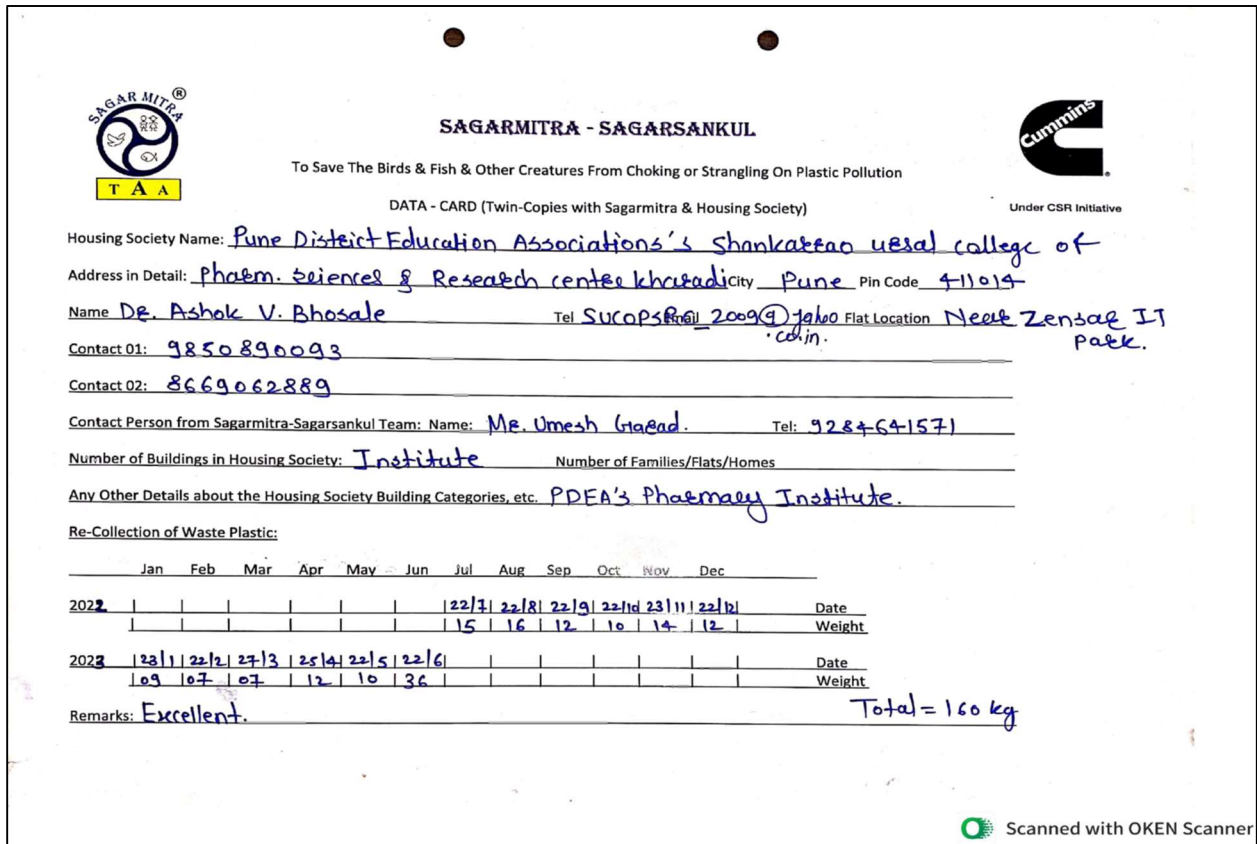 SAGAR MITRA ®
T A A
SAGARMITRA - SAGARSANKUL
To Save The Birds & Fish & Other Creatures From Choking or Strangling On Plastic Pollution
DATA - CARD (Twin-Copies with Sagarmitra & Housing Society)
Cummins
Under CSR Initiative
Housing Society Name: Pune District Education Associations's Shankarrao ursal college of
Address in Detail: Pharm. sciences & Research centre kharadi City Pune Pin Code 411014
Name Dr. Ashok V. Bhosale Tel Email 2009@yahoo Flat Location Near Zensar IT
.co.in. Park.
Contact 01: 9850890093
Contact 02: 8669062889
Contact Person from Sagarmitra-Sagarsankul Team: Name: Mr. Umesh Garad. Tel: 9284641571
Number of Buildings in Housing Society: Institute Number of Families/Flats/Homes
Any Other Details about the Housing Society Building Categories, etc. PDEA's Pharmacy Institute.
Re-Collection of Waste Plastic:
Jan Feb Mar Apr May Jun Jul Aug Sep Oct Nov Dec
2022 22/7 22/8 22/9 22/10 23/11 22/12 Date
15 16 12 10 14 12 Weight
2023 23/1 22/2 27/3 25/4 22/5 22/6 Date
09 07 07 12 10 36 Weight
Remarks: Excellent. Total = 160 kg
Scanned with OKEN Scanner